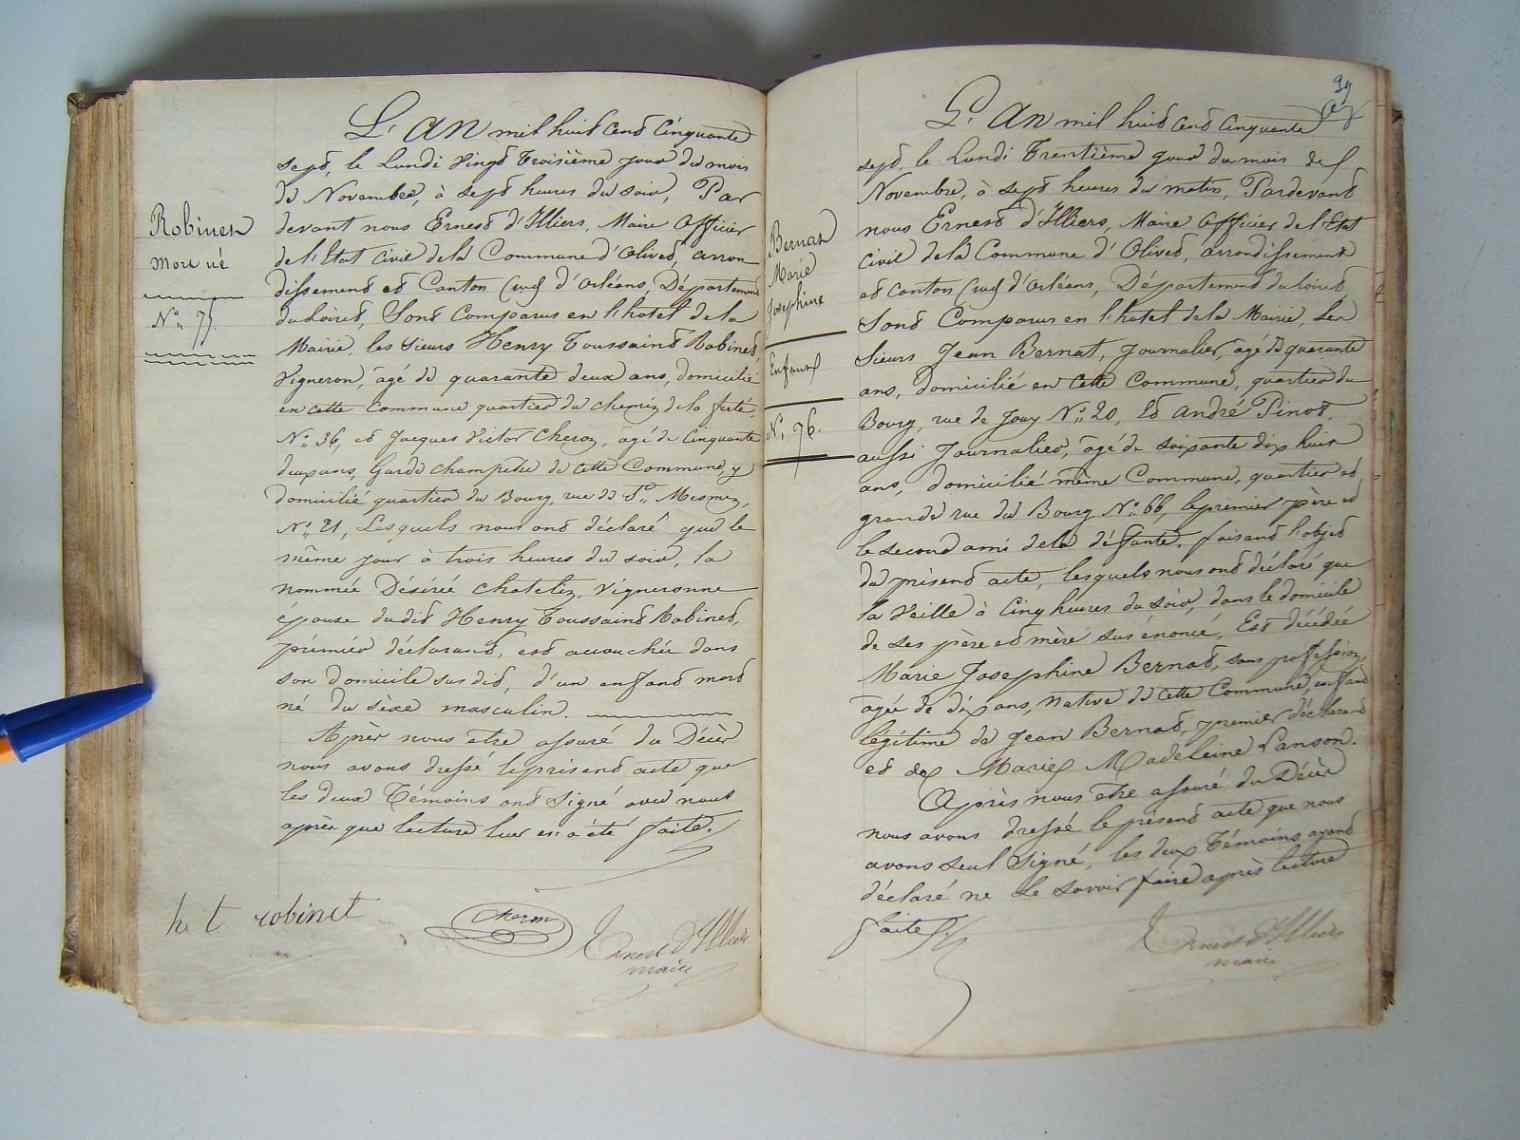 Robinet
mort né
N° 75
L'AN mil huit cent cinquante
sept, le Lundi vingt troisième jour du mois
de Novembre, à sept heures du soir, Par
devant nous Ernest d'Illiers, Maire Officier
de l'Etat Civil de la Commune d'Olivet, arron
dissement et Canton Sud d'Orléans, Département
du Loiret, Sont Comparus en l'hotel de la
Mairie, les Sieurs Henry Toussaint Robinet,
Vigneron, âgé de quarante deux ans, domicilié
en cette Commune quartier du chemin de la ferté
N° 36, et Jacques Victor Cheron, âgé de Cinquante
deux ans, Garde champetre de cette Commune, y
domicilié quartier du Bourg, rue de St Mesmin,
N° 21, Lesquels nous ont déclaré que le
même jour à trois heures du soir, la
nommée Désirée Chatelin, Vigneronne
épouse dudit Henry Toussaint Robinet,
prémier déclarant, est accouchée dans
son domicile sus dit, d'un enfant mort
né du sèxe masculin.
Après nous etre assuré du Décès
nous avons dressé le présent acte que
les deux Témoins ont signé avec nous
après que lecture leur en a été faite.
h t robinet
Cheron
Ernest d'Illiers
maire
39
Bernat
Marie
Josephine
Enfant
N° 76.
L'AN mil huit cent cinquante
sept, le Lundi Trentième jour du mois de
Novembre, à sept heures du matin, Pardevant
nous Ernest d'Illiers, Maire Officier de l'Etat
Civil de la Commune d'Olivet, arrondissement
et canton Sud d'Orléans, Département du Loiret
Sont Comparus en l'hotel de la Mairie, Les
Sieurs Jean Bernat, Journalier, âgé de quarante
ans, domicilié en cette Commune, quartier du
Bourg, rue de Jouy N° 20, Et André Pinot,
aussi Journalier, âgé de soixante dix huit
ans, domicilié même Commune, quartier et
grande rue du Bourg N° 66, le premier père et
le second ami de la défunte, faisant l'objet
du présent acte, lesquels nous ont déclaré que
la Veille à Cinq heures du soir, dans le domicile
de ses père et mère sus énoncé, Est décédée
Marie Josephine Bernat, sans profession,
âgée de dix ans, native de cette Commune, enfant
légitime de Jean Bernat, premier déclarant
et de Marie Madeleine Lanson.
Après nous etre assuré du Décès
nous avons dressé le présent acte que nous
avons seul signé, les deux Témoins ayant
déclaré ne le savoir faire après lecture
faite
Ernest d'Illiers
maire